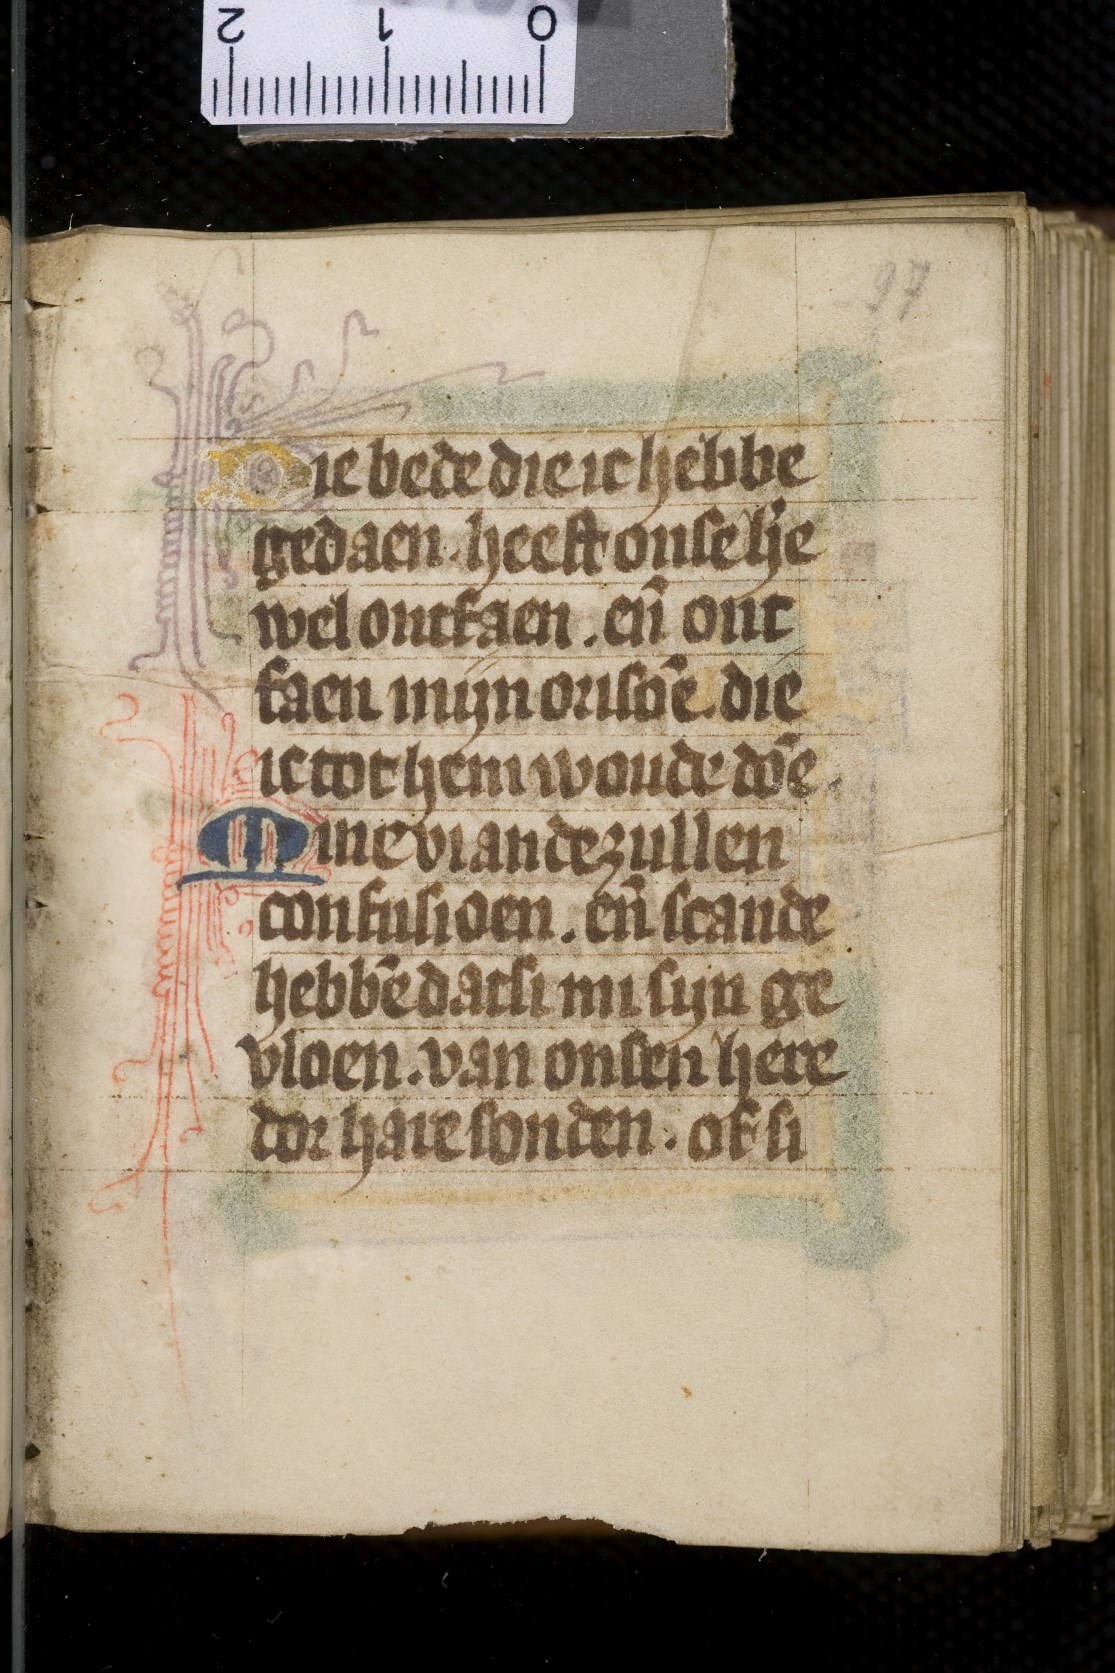 97
Die bede die ic hebbe
gedaen. heeft onse he
wel ontfaen. en̄ ont
faen mijn orisoē. die
ic tot hem woude doē.
Mine viande zullen
confusioen. en̄ scande
hebbē dat si mi sijn ge
vloen. van onsen here
dor hare sonden. of si
2 1 0